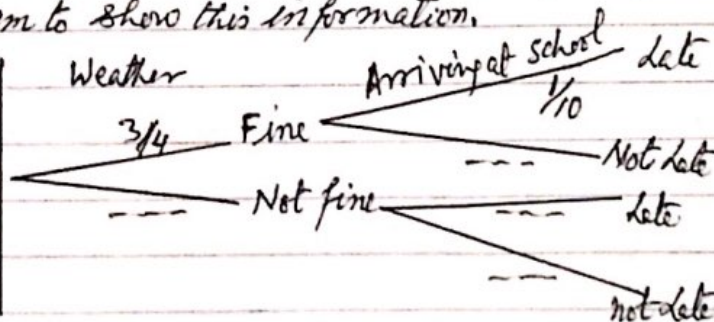 m to show this information.
Weather
Arriving at school
Late
3/4
Fine
1/10
---
Not Late
---
Not fine
---
Late
---
not Late